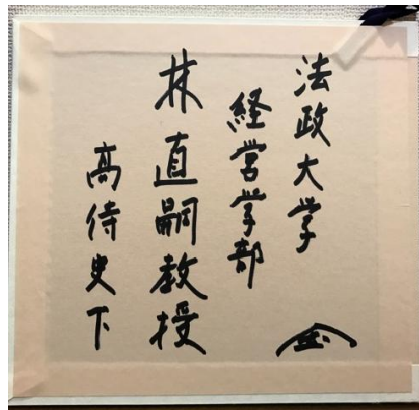 法政大学
経営学部
林直嗣教授
高侍史下